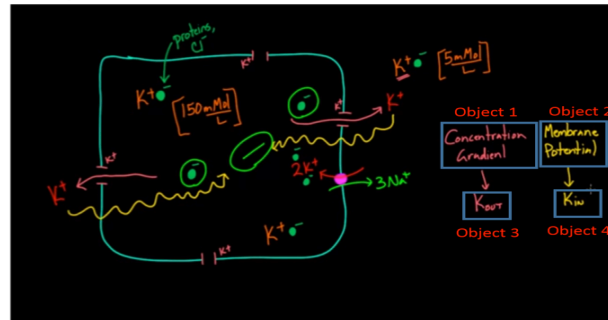 proteins,
Cl⁻
K⁺
K⁺ ⁻ [5 mMol/L]
K⁺ ⁻
[150 mMol/L]
⁻
K⁺
K⁺
Object 1
Object 2
Concentration
Gradient
Membrane
Potential
K⁺
⁻
−
2K⁺
3Na⁺
K⁺
K OUT
K IN
Object 3
Object 4
K⁺ ⁻
K⁺